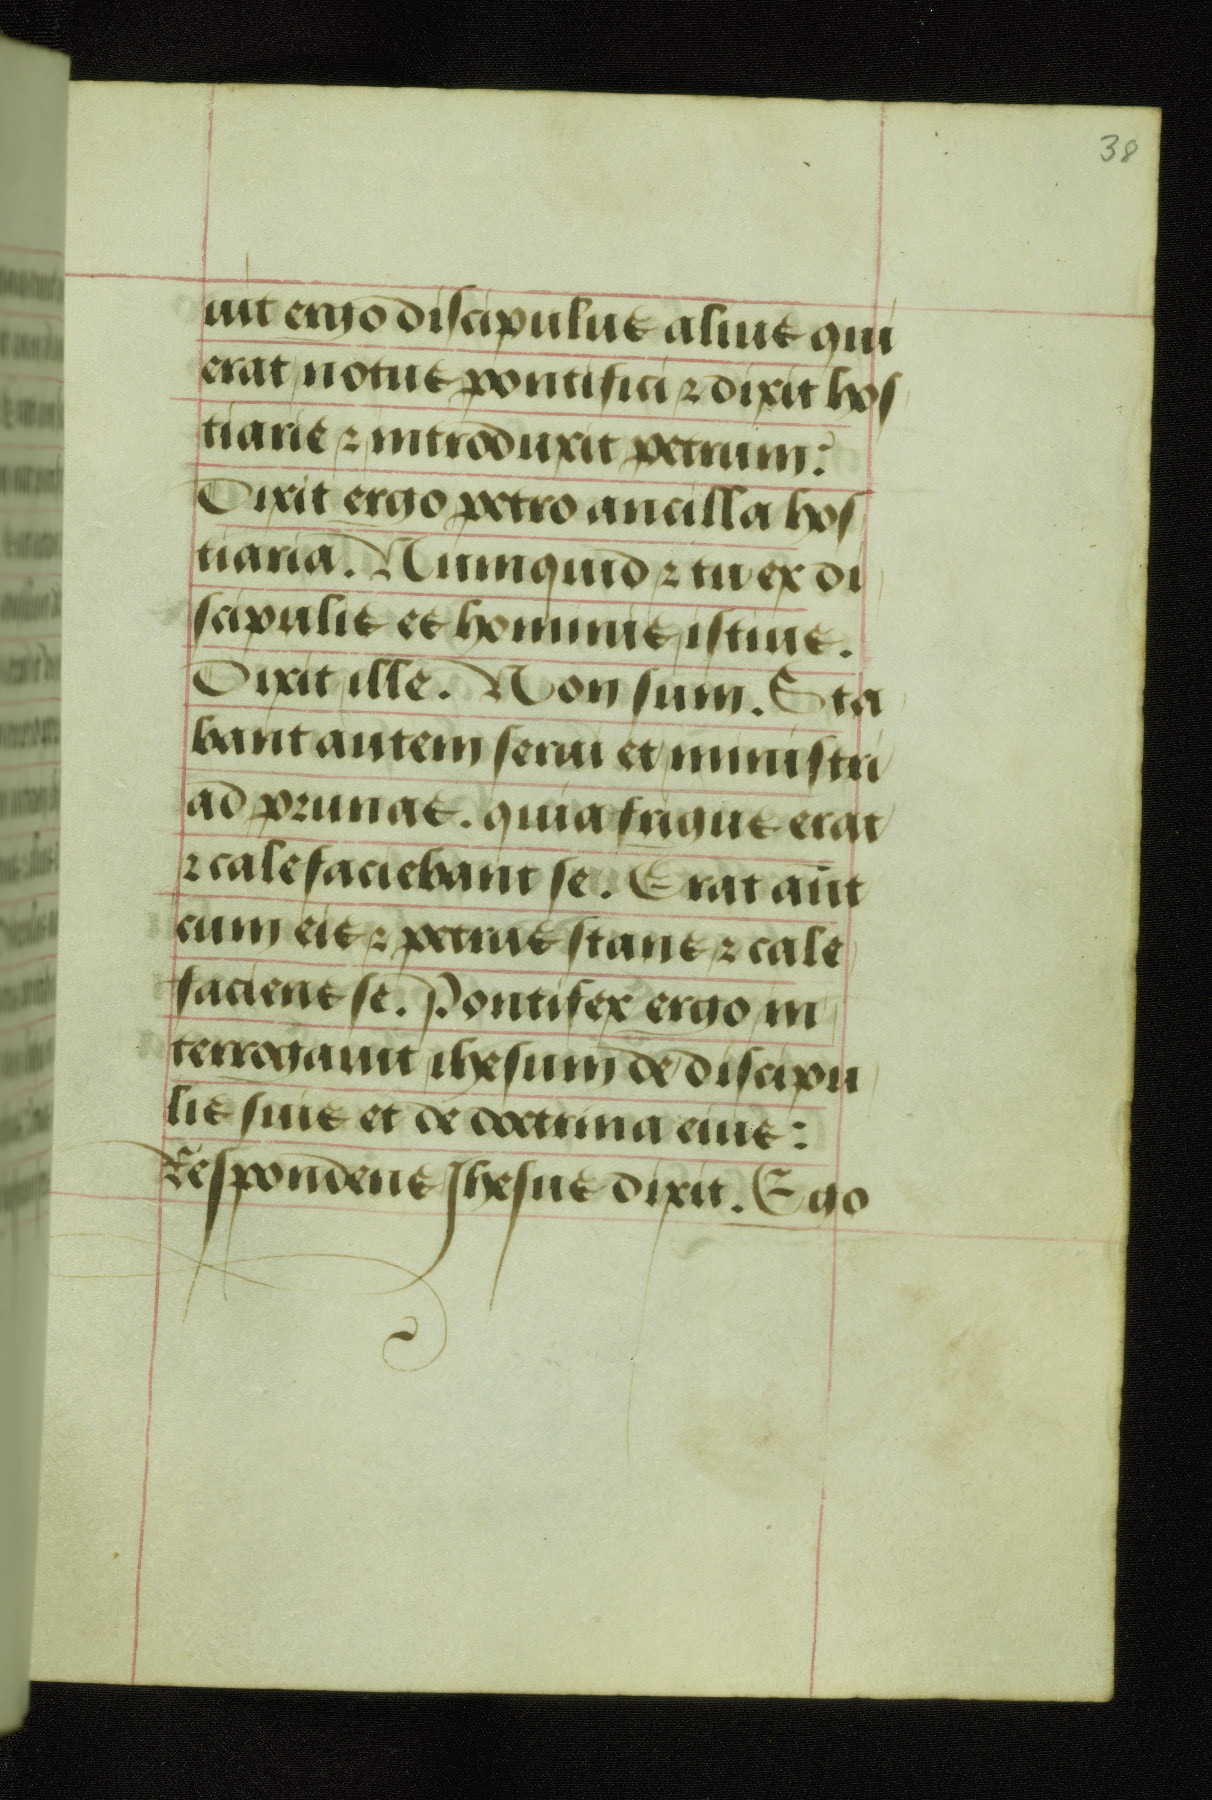 38
uit ergo discipulus alius qui
erat notus pontifici ⁊ dixit hos
tiarie ⁊ introduxit petrum:
Dixit ergo petro ancilla hos
tiaria. Numquid ⁊ tu ex di
scipulis es hominis istius.
Dixit ille. Non sum. Sta
bant autem serui et ministri
ad prunas. quia frigus erat
⁊ calefaciebant se. Erat aūt
cum eis ⁊ petrus stans ⁊ cale
faciens se. Pontifex ergo in
terrogauit ihesum de discipu
lis suis et de doctrina eius:
Respondens Ihesus dixit. Ego